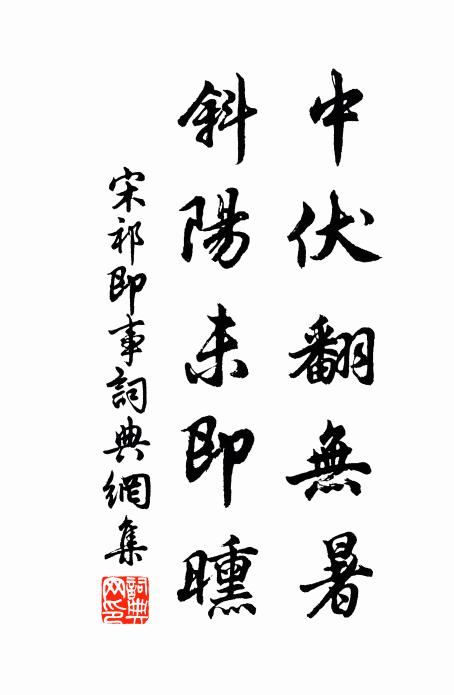 中伏翻無暑
斜陽未即曛
宋祁即事詞典網集
詞典網印